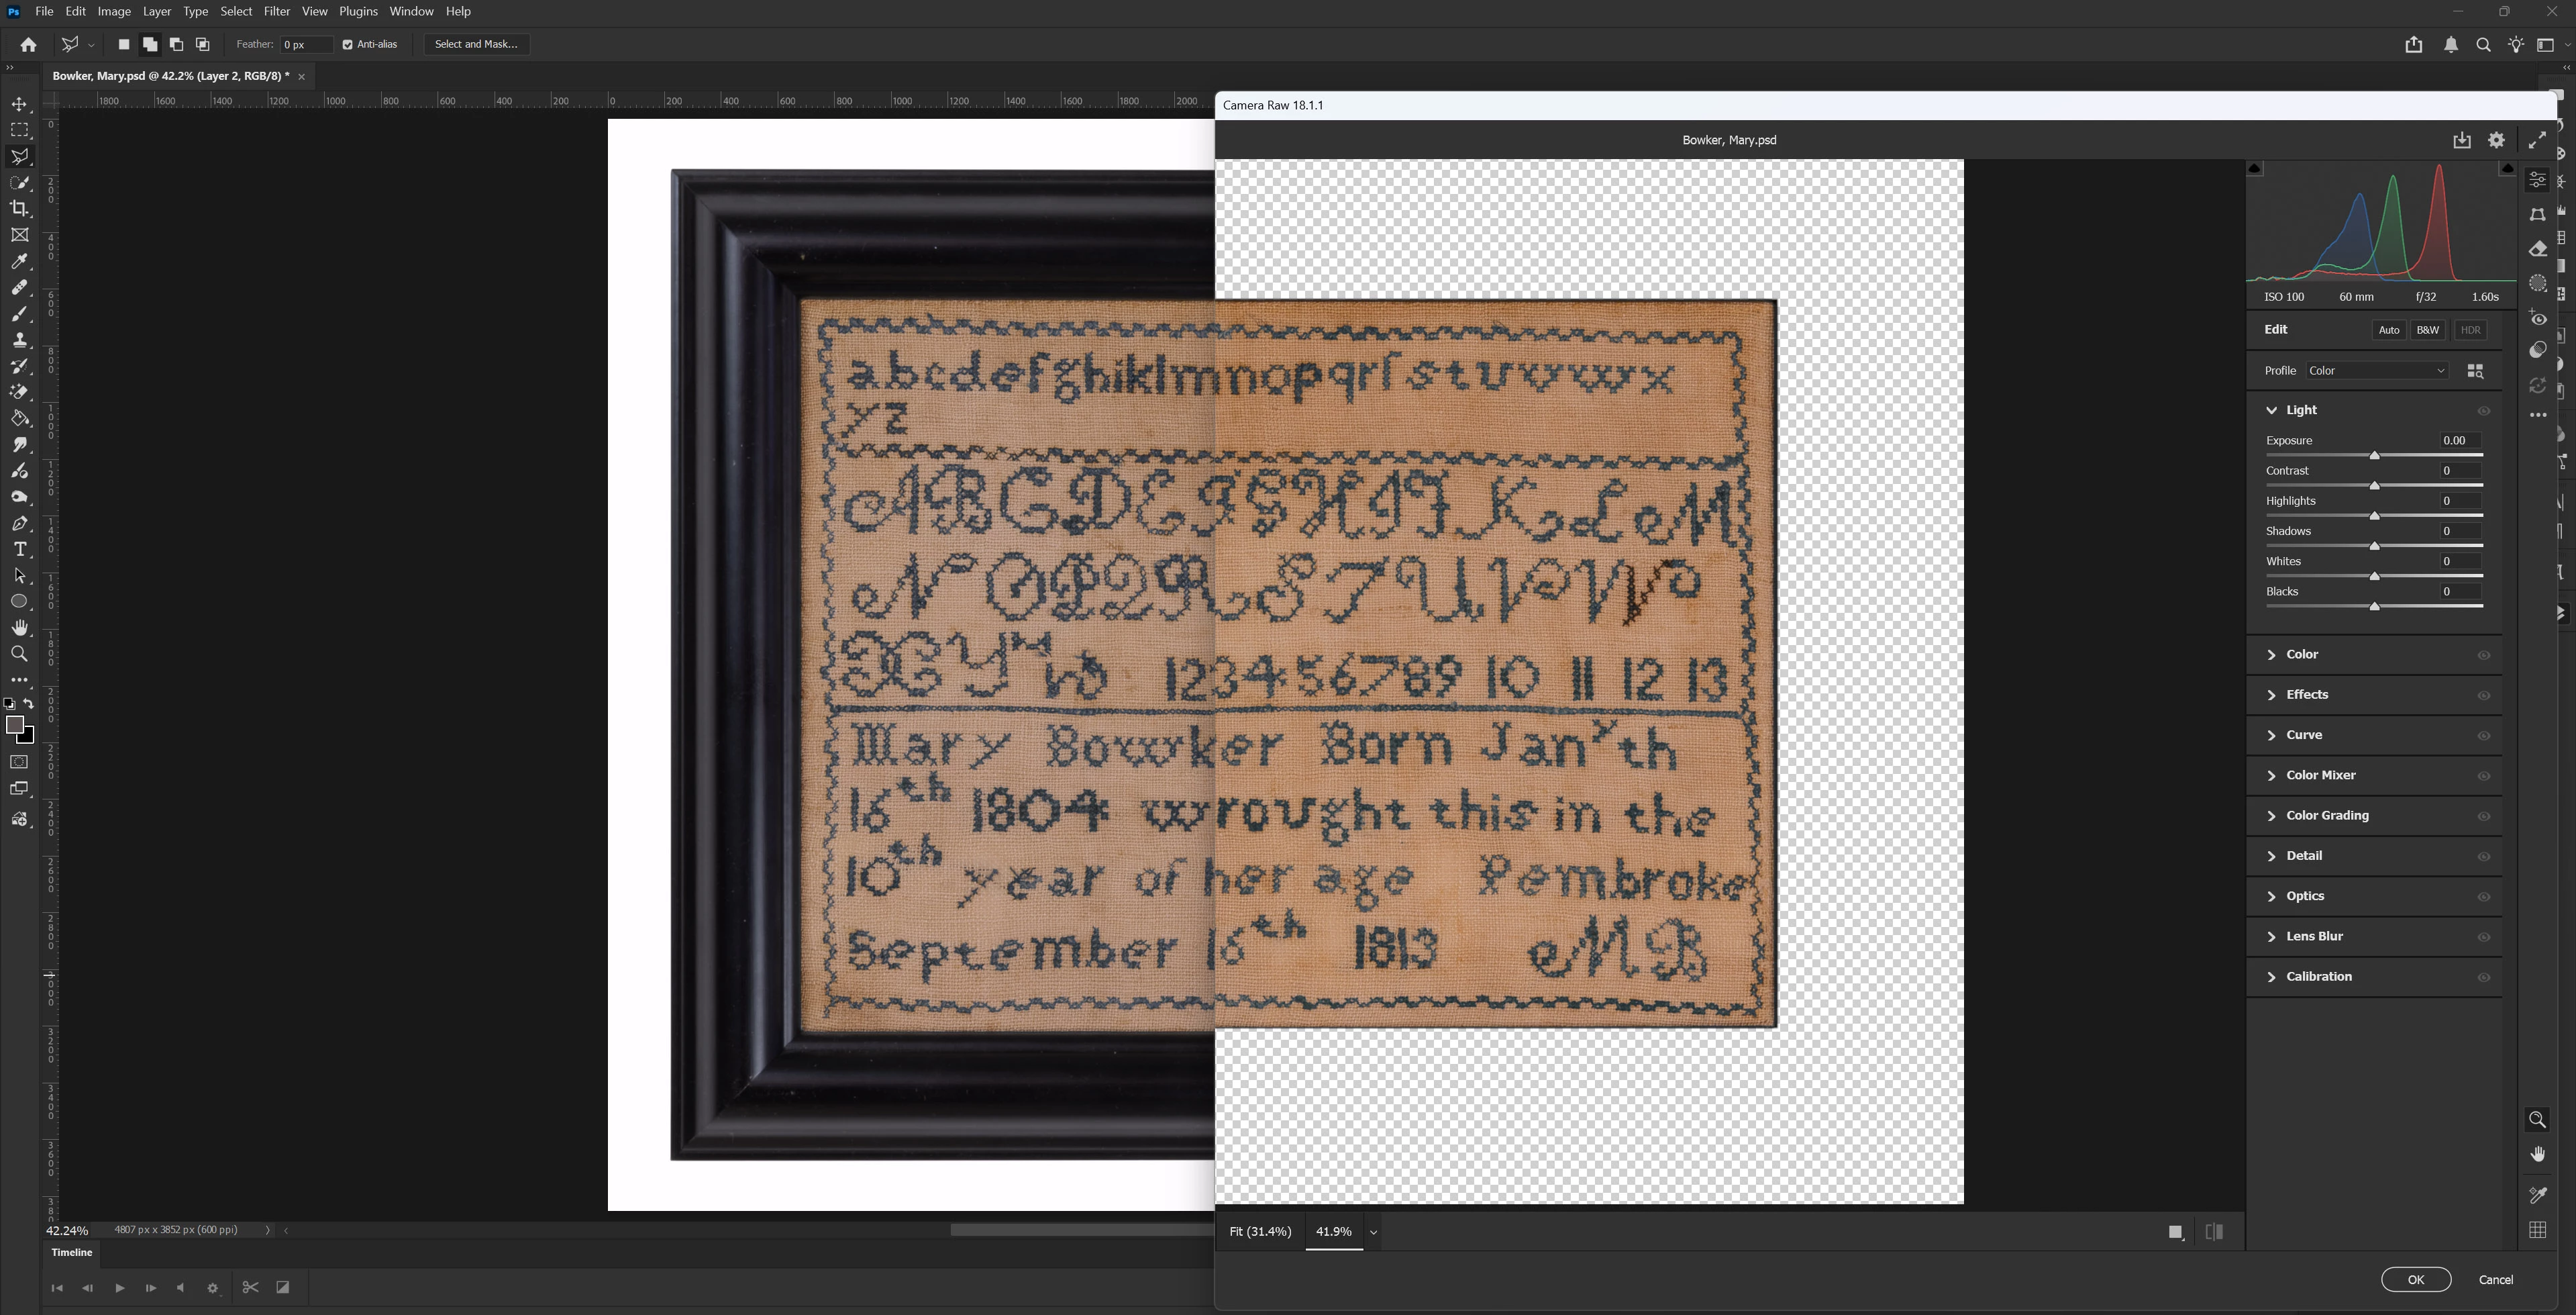 Ps File Edit Image Layer Type Select Filter View Plugins Window Help
Feather: 0 px Anti-alias Select and Mask...
Bowker, Mary.psd @ 42.2% (Layer 2, RGB/8) * ×
1800 1600 1400 1200 1000 800 600 400 200 0 200 400 600 800 1000 1200 1400 1600 1800 2000
Camera Raw 18.1.1
Bowker, Mary.psd
abcdefghiklmnopqrſstuvwwx
yz
ABCDEFGHIJKLM
NOPQRSTUVW
XYZ & 123456789 10 11 12 13
Mary Bowker Born Jan'y th
16th 1804 wrought this in the
10th year of her age Pembroke
September 16th 1813 MB
ISO 100 60 mm f/32 1.60s
Edit Auto B&W HDR
Profile Color
Light
Exposure 0.00
Contrast 0
Highlights 0
Shadows 0
Whites 0
Blacks 0
Color
Effects
Curve
Color Mixer
Color Grading
Detail
Optics
Lens Blur
Calibration
0
200
400
600
800
1000
1200
1400
1600
1800
2000
2200
2400
2600
2800
3000
3200
3400
3600
42.24% 4807 px x 3852 px (600 ppi)
Fit (31.4%) 41.9%
Timeline
OK Cancel